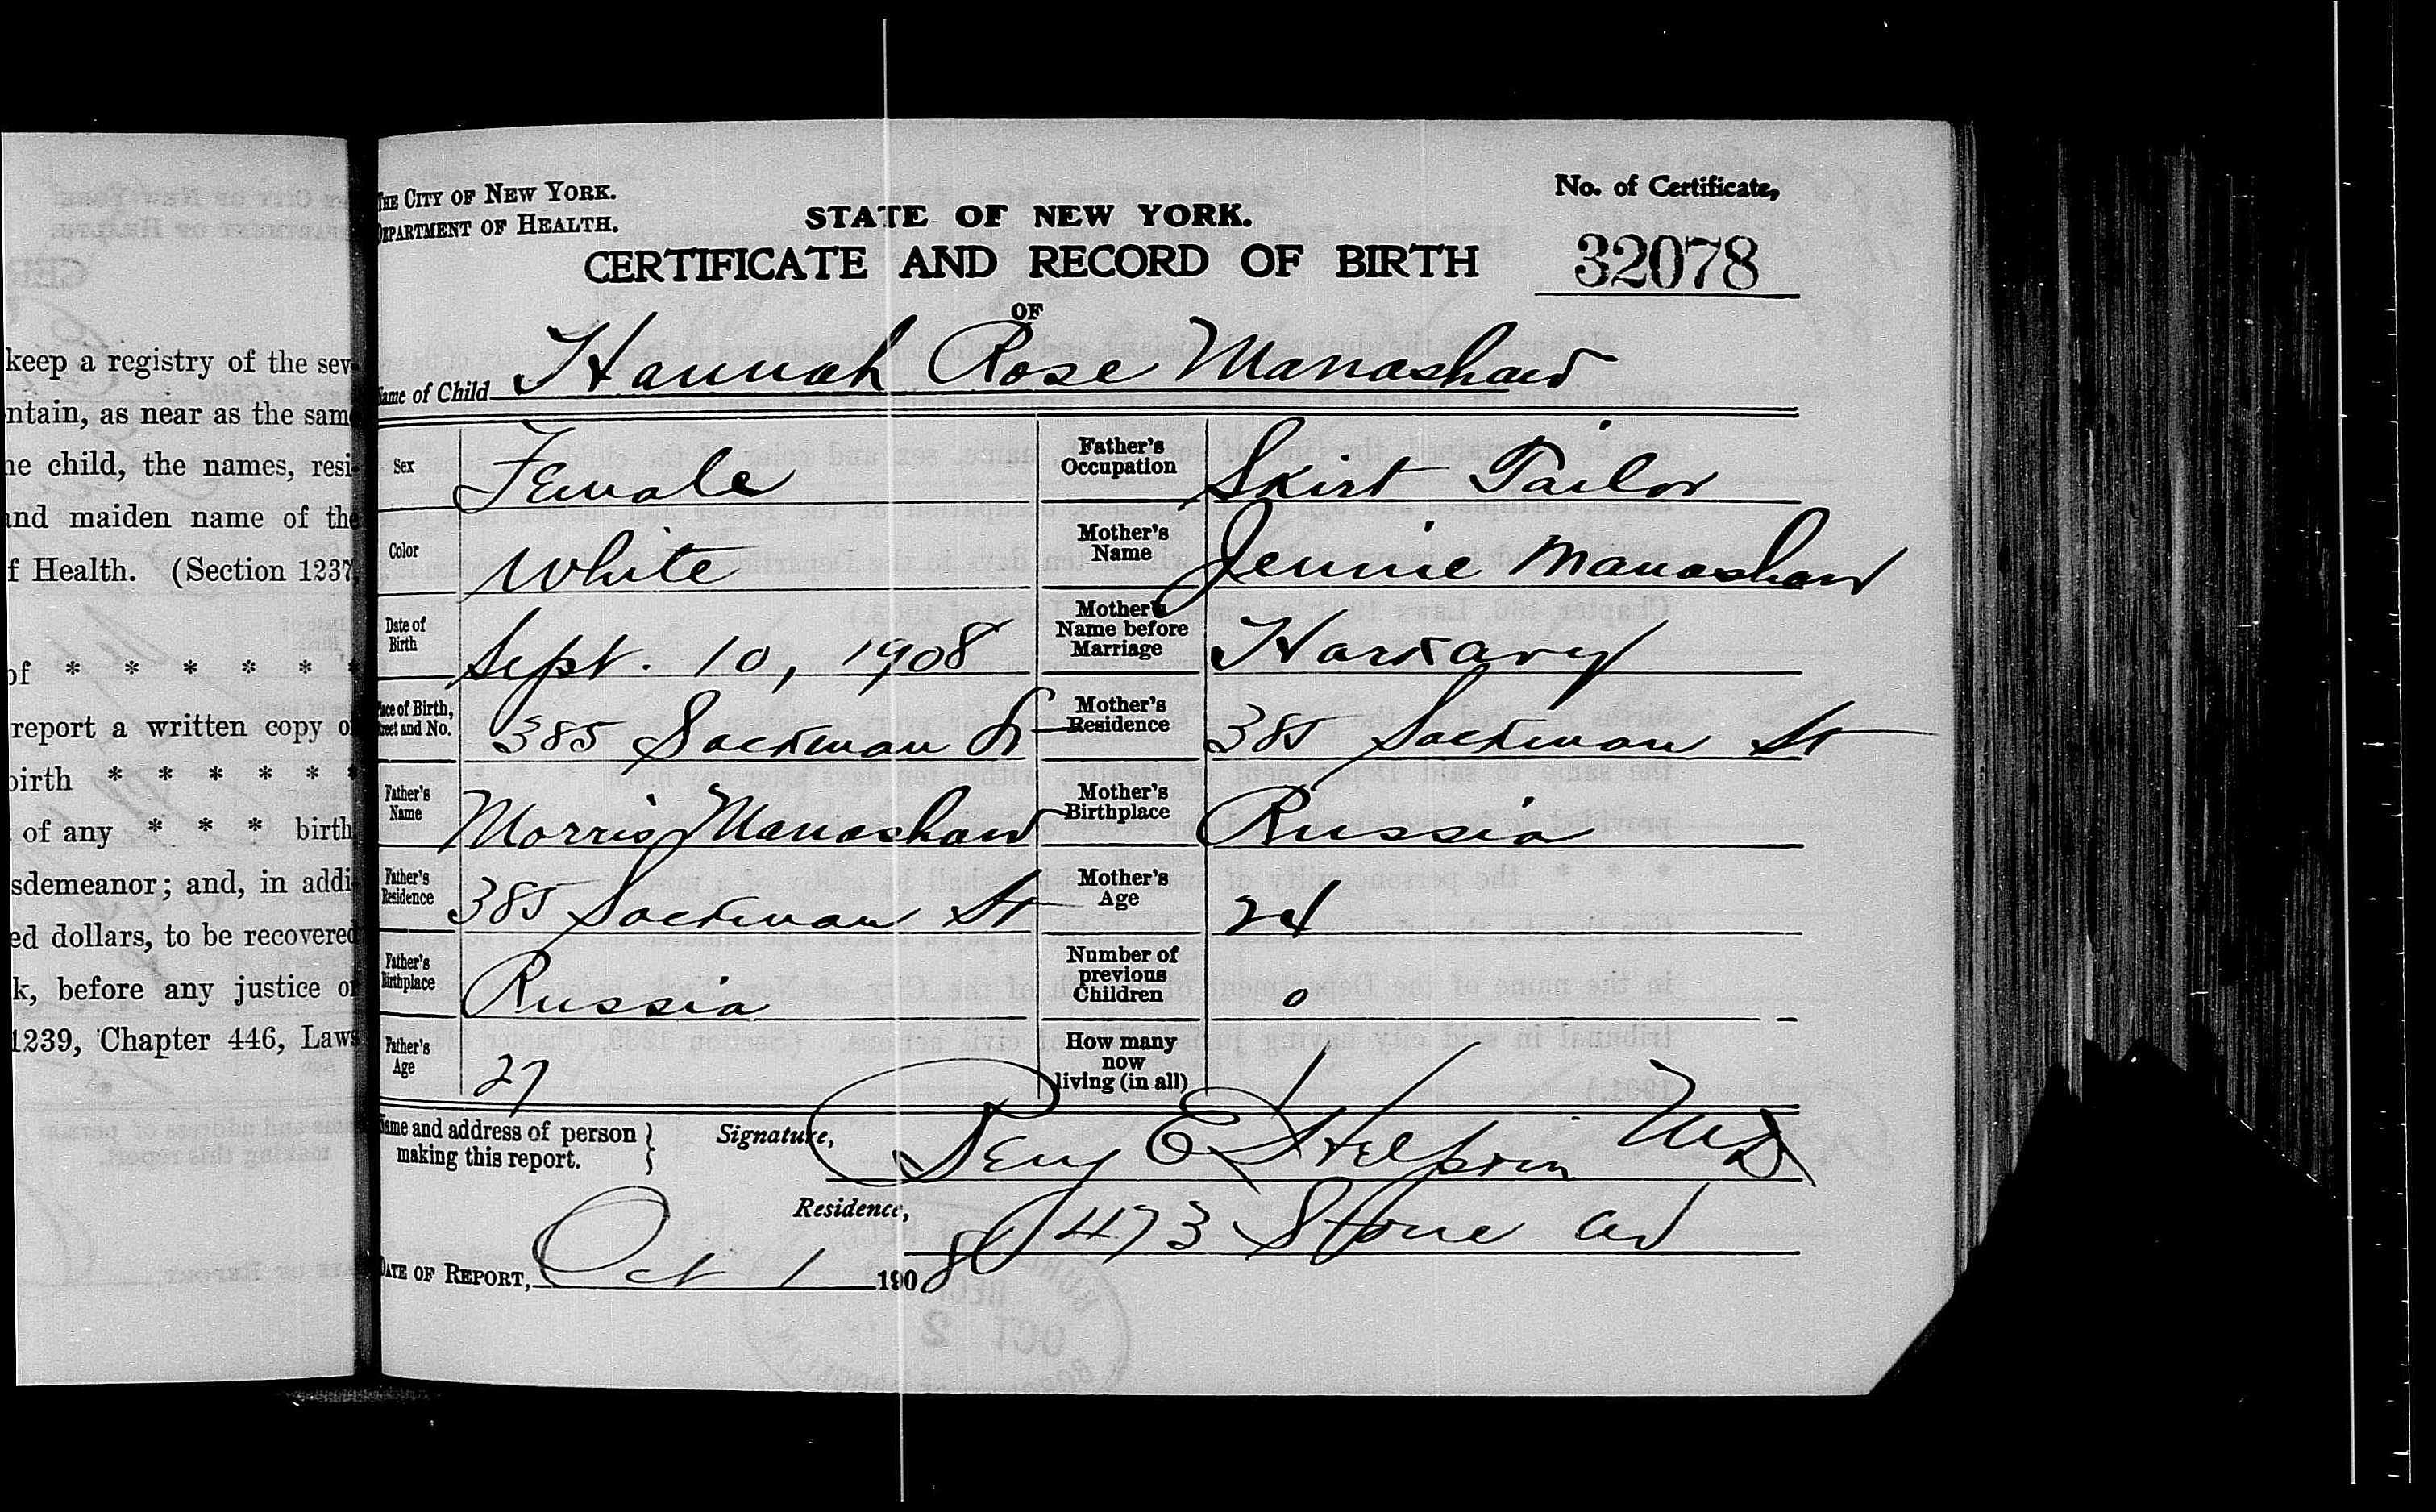 keep a registry of the sev
ntain, as near as the same
ne child, the names, resi-
and maiden name of the
f Health. (Section 1237,
of * * * * * *
report a written copy o
birth * * * * * *
of any * * * birth
sdemeanor; and, in addi-
ed dollars, to be recovered
k, before any justice or
1239, Chapter 446, Laws
THE CITY OF NEW YORK.
DEPARTMENT OF HEALTH.
No. of Certificate,
32078
STATE OF NEW YORK.
CERTIFICATE AND RECORD OF BIRTH
OF
Name of Child Hannah Rose Manashaw
Sex Female
Father's Occupation Skirt Tailor
Color White
Mother's Name Jennie Manashaw
Date of Birth Sept. 10, 1908
Mother's Name before Marriage Harkavy
Place of Birth, Street and No. 385 Sackman St
Mother's Residence 385 Sackman St
Father's Name Morris Manashaw
Mother's Birthplace Russia
Father's Residence 385 Sackman St
Mother's Age 24
Father's Birthplace Russia
Number of previous Children 0
Father's Age 27
How many now living (in all) 1
Name and address of person making this report.
Signature, Benj E Helprin MD
Residence, 473 Stone av
DATE OF REPORT, Oct 1 1908